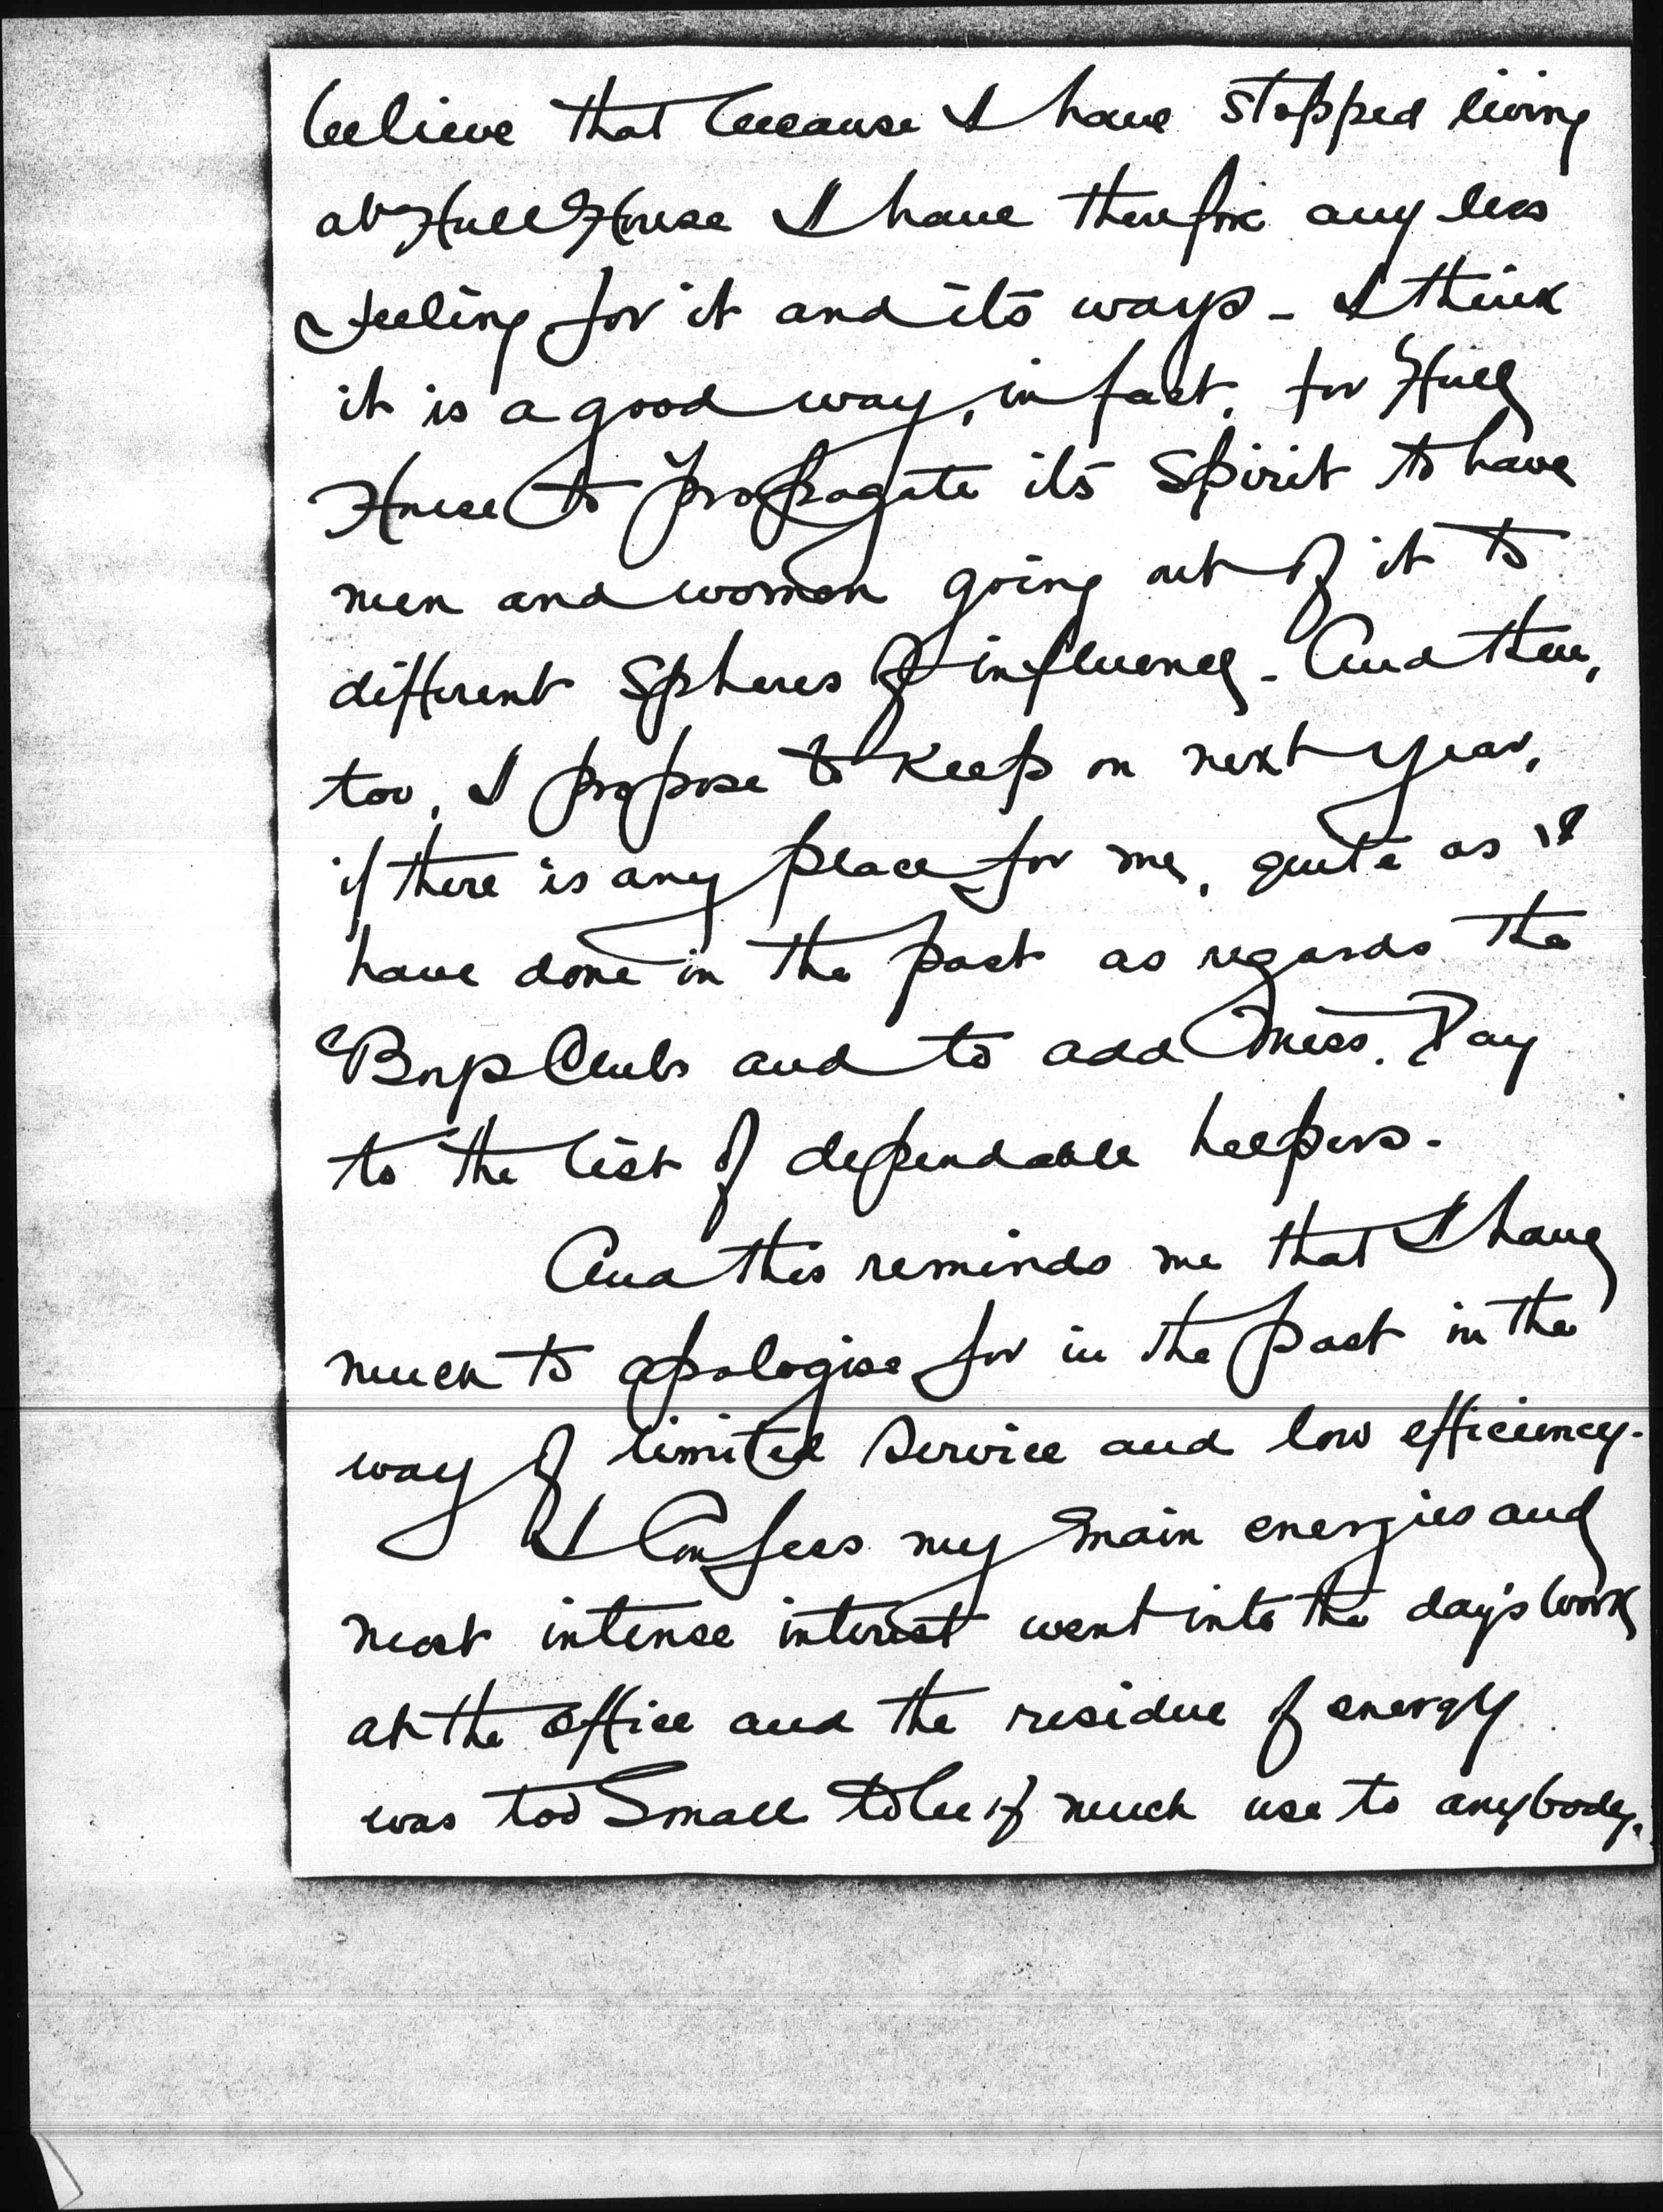 believe that because I have stopped living
at Hull House I have therefore any less
feeling for it and its ways - I think
it is a good way, in fact, for Hull
House to propagate its Spirit to have
men and women going out of it to
different Spheres of influence - And then,
too, I propose to keep on next year,
if there is any place for me, quite as I
have done in the past as regards the
Boys Club and to add Miss. Day
to the list of dependable helpers -
And this reminds me that I have
much to apologise for in the past in the
way of limited Service and low efficiency -
I Confess my main energies and
most intense interest went into the day's work
at the office and the residue of energy
was too Small to be of much use to anybody.